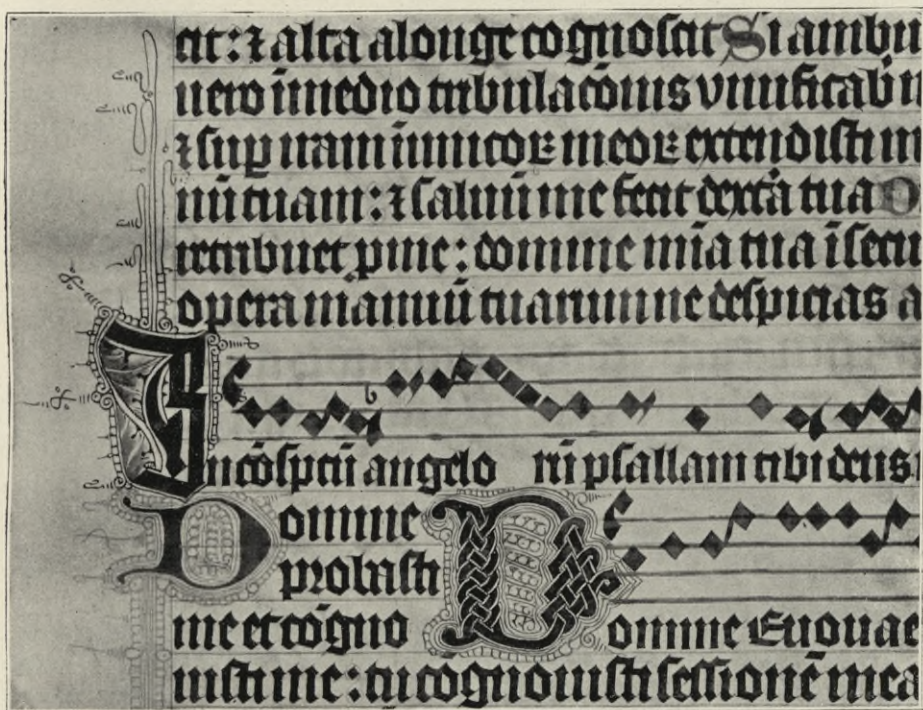 cit: ⁊ alta a longe cognoscit Si ambu
uero ī medio tribulacōnis viuificabi
⁊ sup iram inimicoꝝ meoꝝ extendisti m
nū tuam: ⁊ saluū me fecit dextᷓa tua D
retribuet p me: domine mīa tua ī secu
opera manuū tuarum ne despicias a
In cōspctū angelo rū psallam tibi deus
Domine
probasti
me et cōgno Domine Euouae
uisti me: tu cōgnouisti sessionē mea